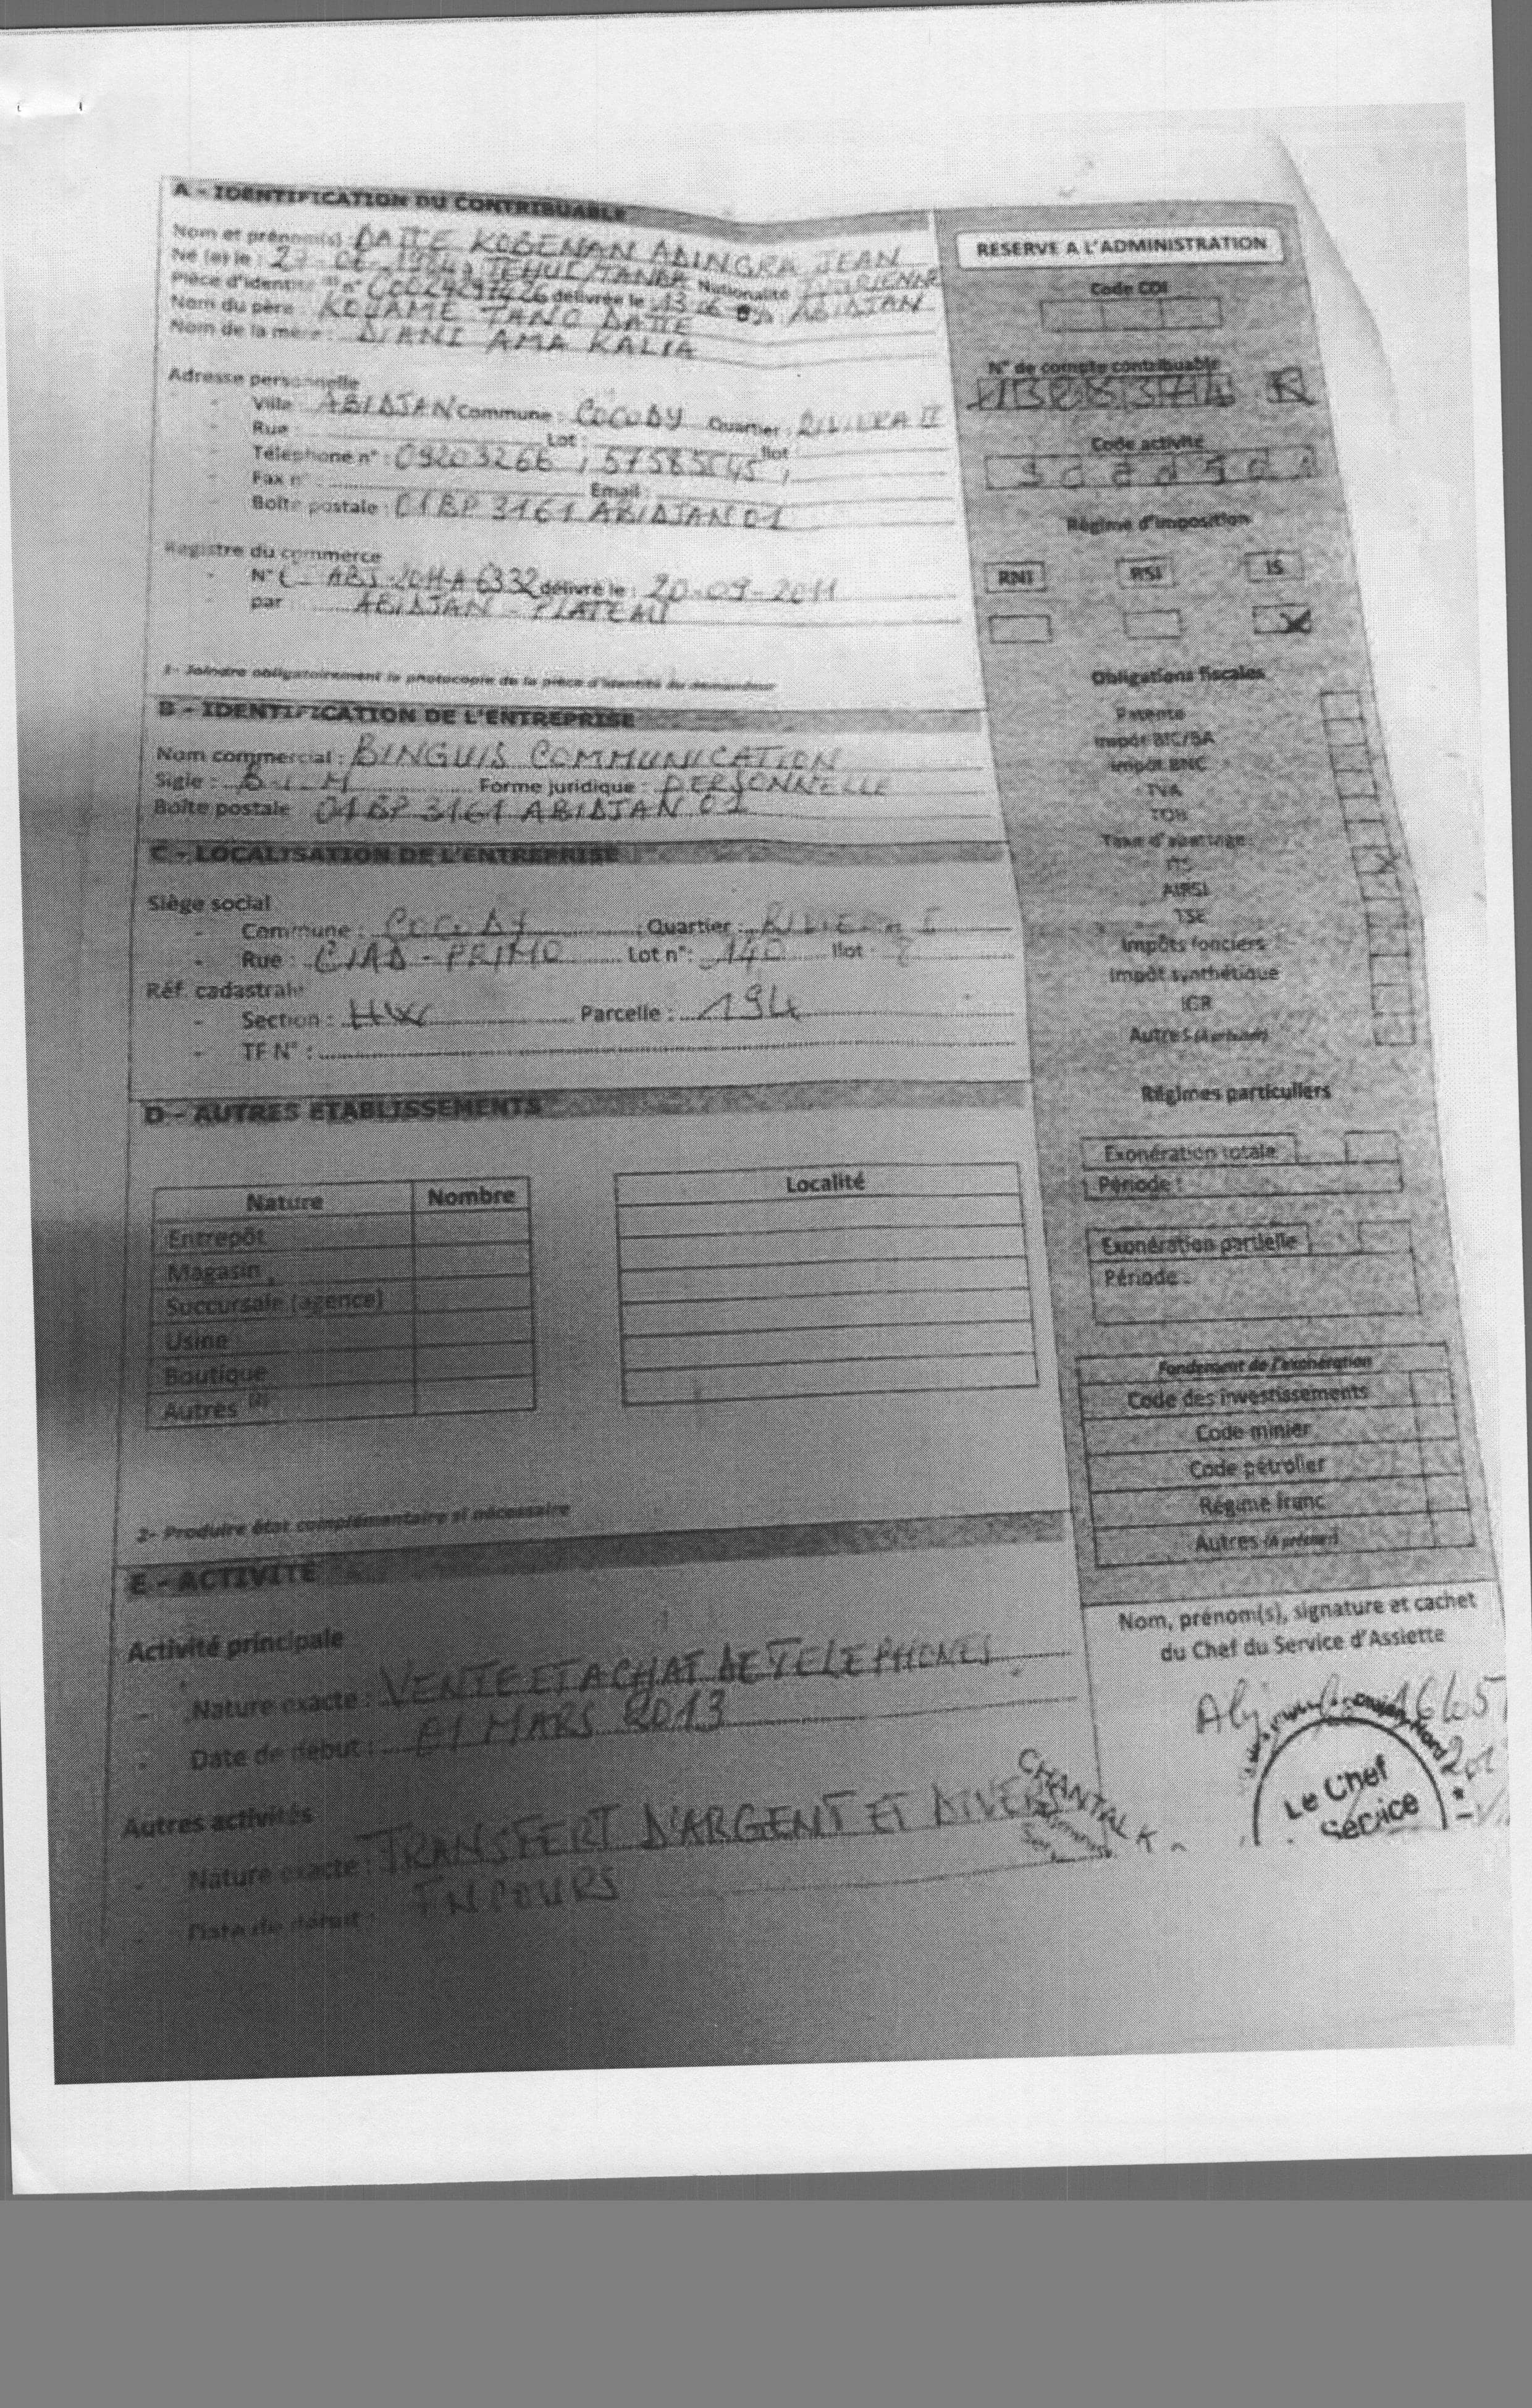 A - IDENTIFICATION DU CONTRIBUABLE
Nom et prénom(s) : DATTE KOBENAN ADINGRA JEAN
Né (e) le : 27 Nationalité IVOIRIENNE
Pièce d'identité (1) n° délivrée le : 13 à ABIDJAN
Nom du père : KOUAME TANO DATTE
Nom de la mère : DIANI AMA KALIA
Adresse personnelle
- Ville : ABIDJAN Commune : COCODY Quartier : RIVIERA II
- Rue : Lot : Ilot :
- Téléphone n° : 09203266 ;
- Fax n° : Email :
- Boîte postale : 01 BP 3161 ABIDJAN 01
Registre du commerce
- N° ABJ-2011-A 6332 délivré le : 20-09-2011
- par : ABIDJAN - PLATEAU
1- Joindre obligatoirement la photocopie de la pièce d'identité du demandeur
B - IDENTIFICATION DE L'ENTREPRISE
Nom commercial : BINGUIS COMMUNICATION
Sigle : Forme juridique : PERSONNELLE
Boîte postale : 01 BP 3161 ABIDJAN 01
C - LOCALISATION DE L'ENTREPRISE
Siège social
- Commune : COCODY Quartier : RIVIERA
- Rue : CIAD - PRIMO Lot n° : 140 Ilot :
Réf. cadastrale
- Section : Parcelle : 194
- TF N° :
D - AUTRES ETABLISSEMENTS
Nature Nombre Localité
Entrepôt
Magasin
Succursale (agence)
Usine
Boutique
Autres (2)
2- Produire état complémentaire si nécessaire
E - ACTIVITE
Activité principale
- Nature exacte : VENTE ET ACHAT DE TELEPHONES
- Date de début : 01 MARS 2013
Autres activités
- Nature exacte : TRANSFERT D'ARGENT ET DIVERS
- Date de début : EN COURS
RESERVE A L'ADMINISTRATION
Code CDI
N° de compte contribuable
Code activité
Régime d'imposition
RNI RSI IS
X
Obligations fiscales
Patente
Impôt BIC/BA
Impôt BNC
TVA
TOB
Taxe d'abattage
ITS X
AIRSI
TSE
Impôts fonciers
Impôt synthétique
IGR
Autres (à préciser)
Régimes particuliers
Exonération totale
Période :
Exonération partielle
Période :
Fondement de l'exonération
Code des investissements
Code minier
Code pétrolier
Régime franc
Autres (à préciser)
Nom, prénom(s), signature et cachet
du Chef du Service d'Assiette
Le Chef
Service
CHANTAL K